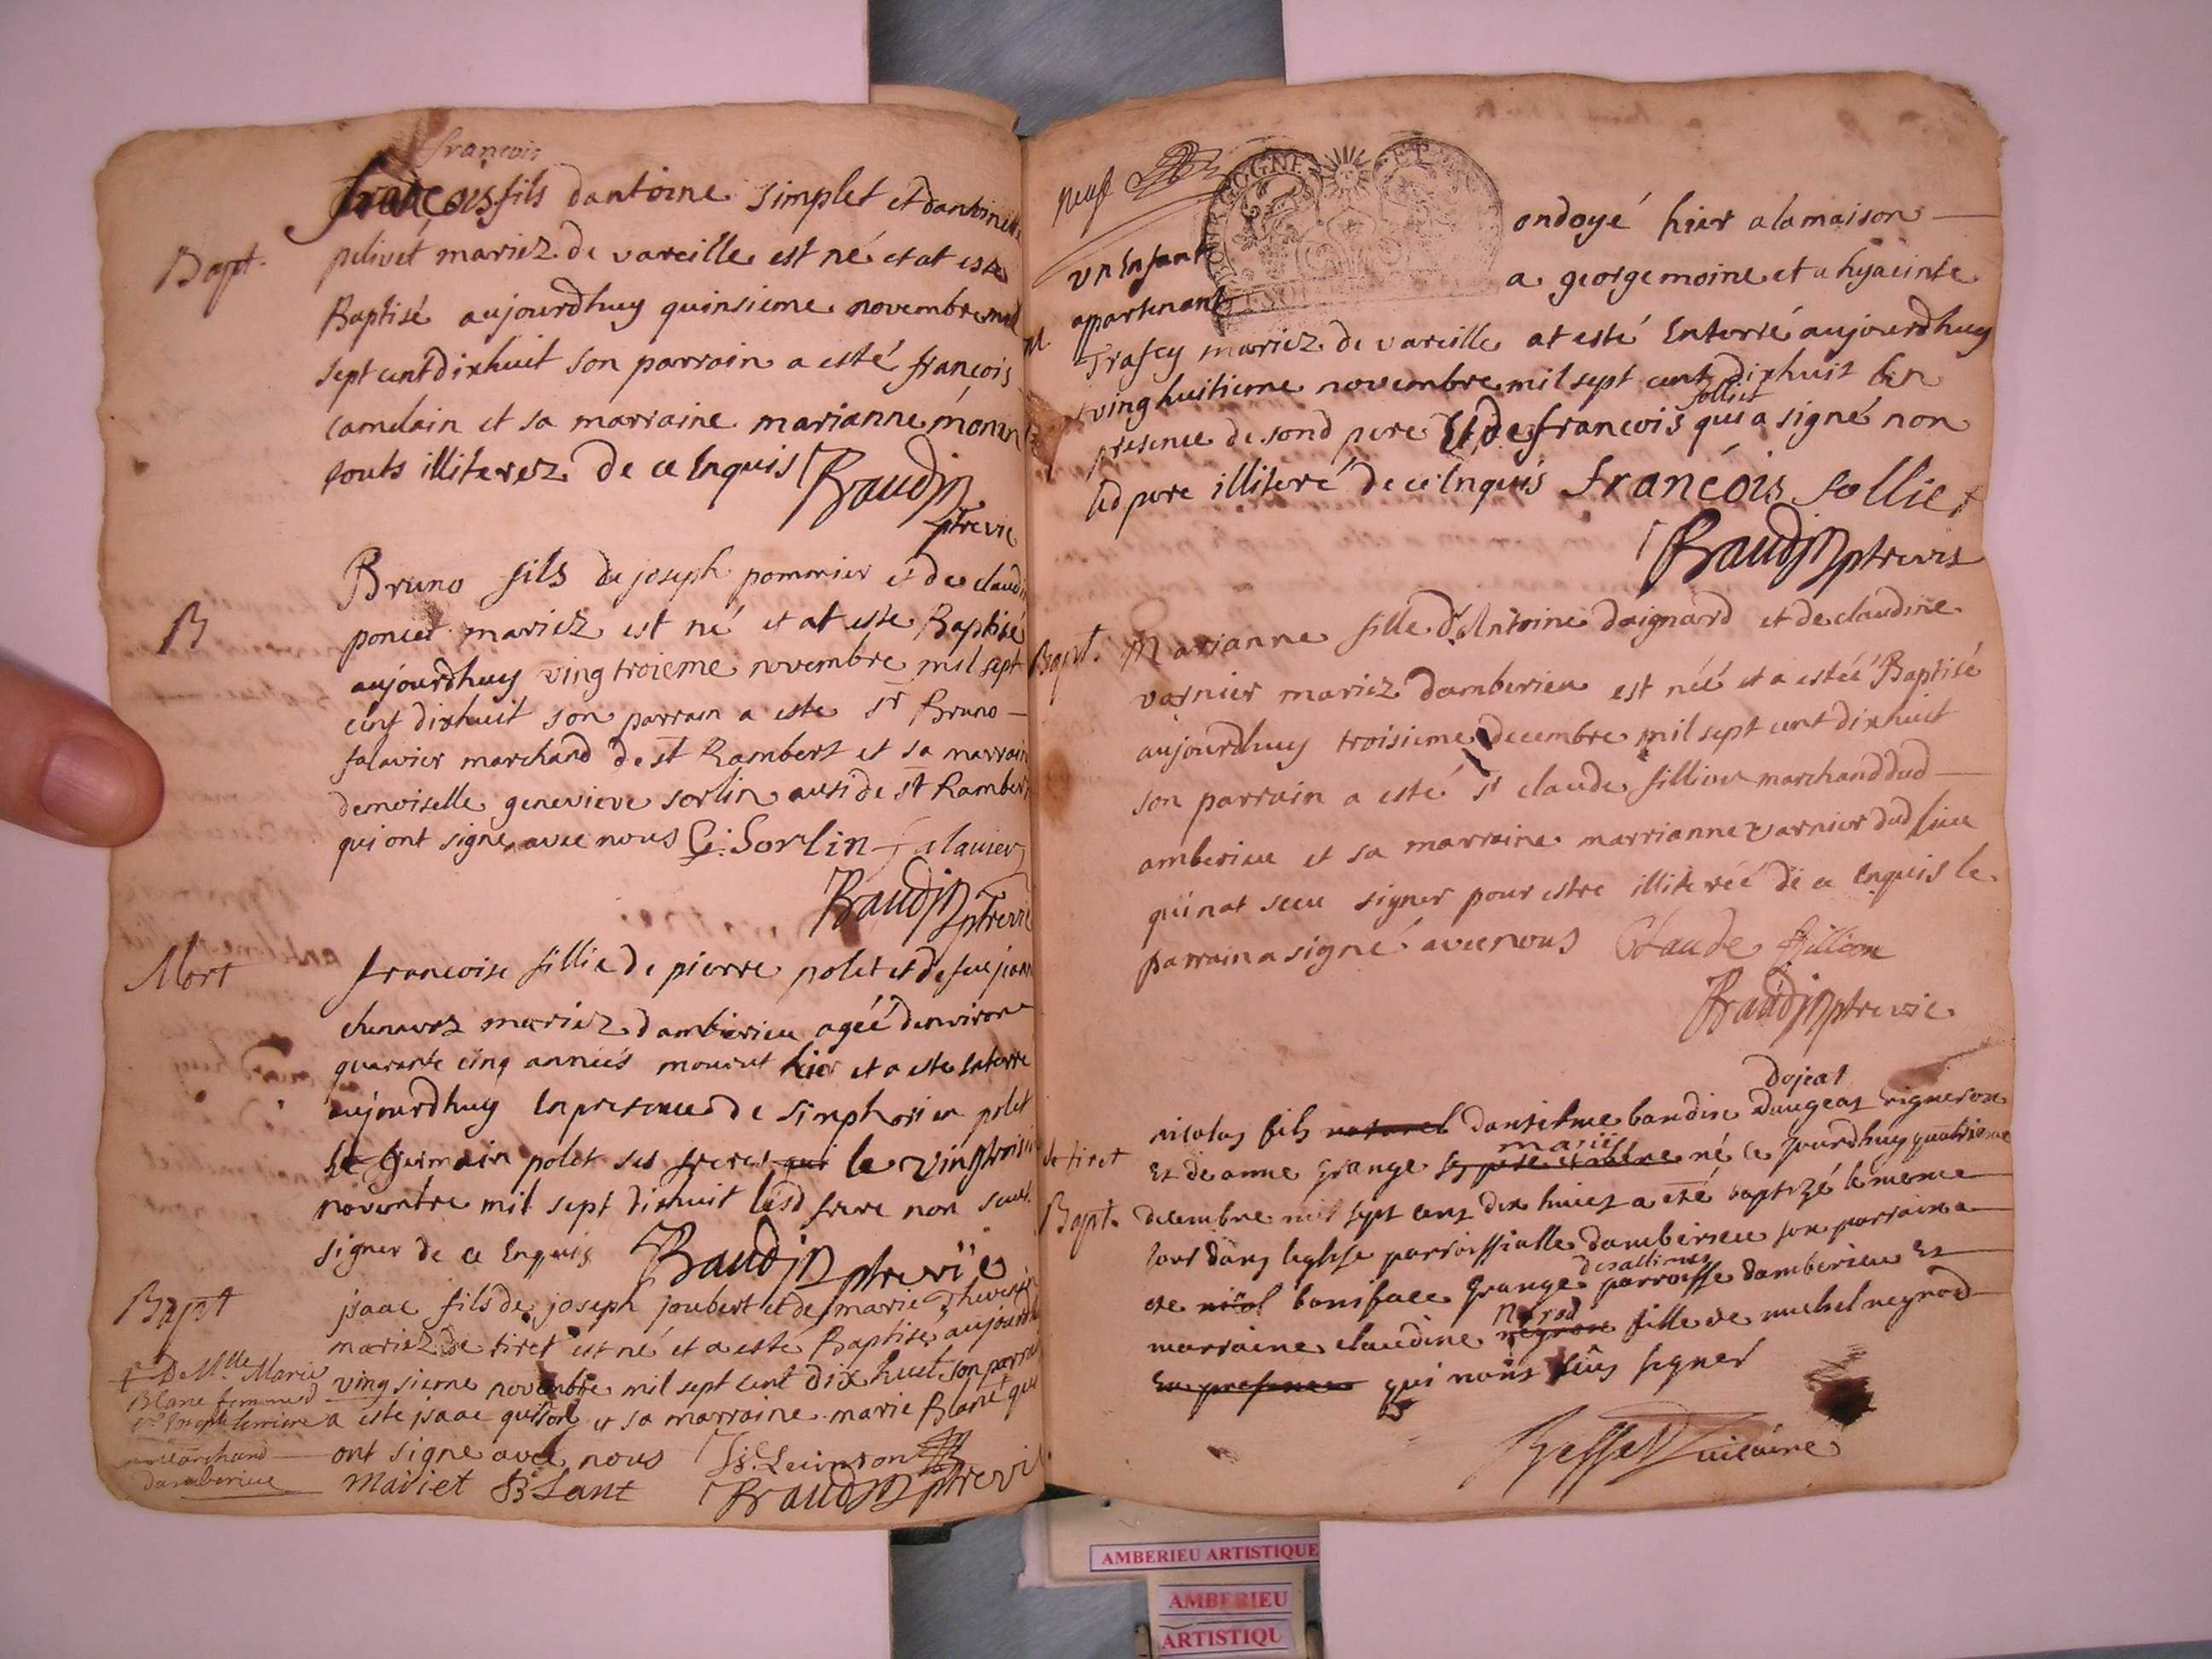 francois
francois fils dantoine simplet et dantoinette
Bapt. pelivet mariez de vareille est né et at esté
Baptisé aujourdhuy quinsieme novembre mil
sept cent dixhuit son parrain a esté francois
camelain et sa marraine marianne monin
touts illiterez de ce Enquis Baudin
ptre vic
Bruno fils de joseph pommier et de claudi
B poncet mariez est né et at este Baptisé
aujourdhuy ving troieme novembre mil sept
cent dixhuit son parrain a este sr Bruno
falavier marchand de st Rambert et sa marrain
demoiselle genevieve sorlin ausi de st Rambert
qui ont signe avec nous G. Sorlin falavier
Baudin ptre vic
Mort francoise fillie de pierre polet et de feue jeann
mariez damberieu agéé denviron
quarante cinq annéés mourut hier et a este Enterre
aujourdhuy En presence de simphorien polet
Et Germain polet ses freres qui le vingtroisie
novembre mil sept dixhuit lesd frere non sceu
signer de ce Enquis Baudin ptre vic
Bapt jsaac fils de joseph joubert et de marie Thevenin
mariez de tiret est né et a esté Baptisé aujourdh
ving sieme novembre mil sept cent dix huit son parrai
a este jsaac et sa marraine marie Blanc qui
ont signe avec nous
Mariet Blanc Baudin ptre vic
† De Mlle Marie
Blanc femme d
marchand
damberieu
neuf
ondoyé hier a la maison
Un Enfant
appartenant a george moine et a hyacinte
Trafey mariez de vareille at esté Enterré aujourdhuy
ving huitieme novembre mil sept cent dixhuit En
solliet
presence de sond pere Et de francois qui a signé non
led pere illiteré de ce Enquis francois solliet
Baudin ptre vic
Bapt. Marianne fille d'Antoine daignard et de claudine
varnier mariez damberieu est néé et a estéé Baptisé
aujourdhuy troisieme decembre mil sept cent dixhuit
son parrain a esté sr claude fillion marchand dud
amberieu et sa marraine marrianne varnier dud lieu
qui nat sceu signer pour estre illiteréé de ce Enquis le
parrain a signé avec nous Claude fillion
Baudin ptre vic
dojeat
nicolas fils naturel dantelme baudin daugeat vigneron
mariés
de tiret et de anne grange né ce jourdhuy quatrieme
Bapt. decembre mil sept cens dix huict a eté baptizé le meme
jour dans leglise parroissialle damberieu son parrain a
des allimes
ete nicol boniface grange parroisse damberieu et
Negrod
marraine claudine negron fille de michel negrod
En presence qui nont sçus signer
Besset vicaire
AMBERIEU ARTISTIQUE
AMBERIEU
ARTISTIQU